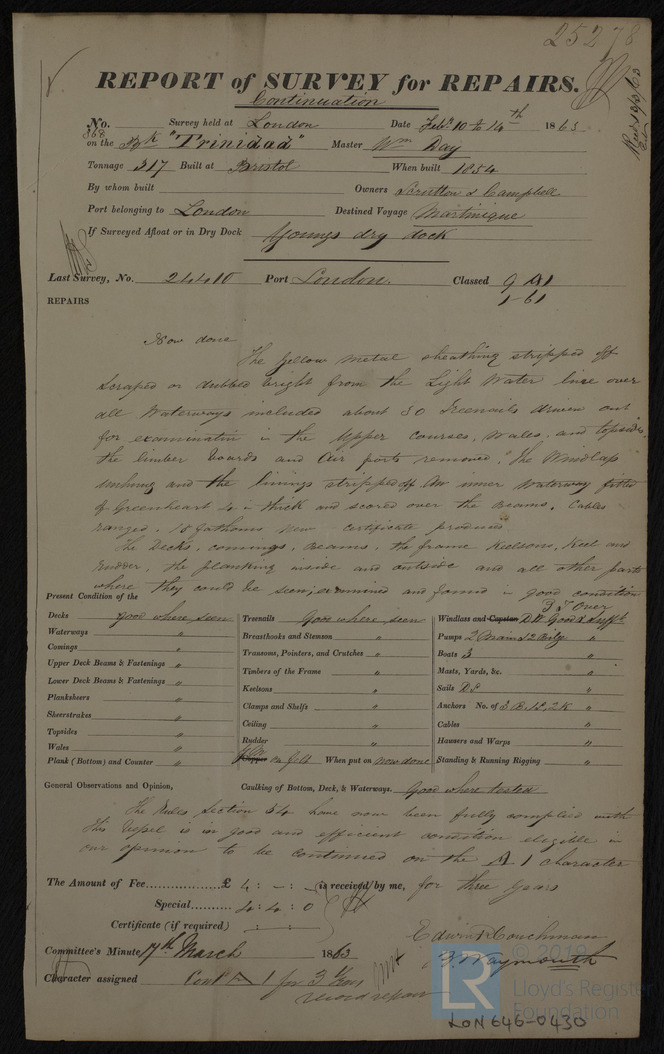 25278
REPORT of SURVEY for REPAIRS.
Continuation
No. 368 Survey held at London Date Feby 10 to 14th 1863
on the Bk "Trinidad" Master Wm Day
Tonnage 317 Built at Bristol When built 1854
By whom built Owners Scrutton & Campbell
Port belonging to London Destined Voyage Martinique
If Surveyed Afloat or in Dry Dock Youngs dry dock
Last Survey, No. 24410 Port London Classed 9 A1
1-61
REPAIRS
Now done
The yellow metal sheathing stripped off
scraped or dubbed bright from the Light Water line over
all Waterways included about 50 Treenails driven out
for examination in the Upper courses, Wales, and topsides
the limber boards and Air ports removed. The Windlass
and the linings stripped off. An inner Waterway fitted
of Greenheart 4 in thick and scored over the beams. Cables
ranged. 15 fathoms new certificate produced
The Decks, comings, beams, the frame Keelsons, Keel and
Rudder, the planking inside and outside and all other parts
where they could be seen, examined and found in good condition
Present Condition of the
Decks good where seen
Waterways "
Comings "
Upper Deck Beams & Fastenings "
Lower Deck Beams & Fastenings "
Planksheers "
Sheerstrakes "
Topsides "
Wales "
Plank (Bottom) and Counter "
Treenails Good where seen
Breasthooks and Stemson "
Transoms, Pointers, and Crutches "
Timbers of the Frame "
Keelsons "
Clamps and Shelfs "
Ceiling "
Rudder "
Copper on felt When put on now done
Windlass and Capstan Good & Sufft
Pumps 2 Main & 2 Bilge "
Boats 3 "
Masts, Yards, &c. "
Sails "
Anchors No. of 3 B, 1 S, 2 K "
Cables "
Hawsers and Warps "
Standing & Running Rigging "
General Observations and Opinion, Caulking of Bottom, Deck, & Waterways. Good where tested
The Rules Section 54 have now been fully complied with
This Vessel is in good and efficient condition eligible in
our opinion to be continued on the A 1 character
for three years
The Amount of Fee £ 4 : - : - is received by me,
Special 4 : 4 : 0
Certificate (if required) : :
Edwin Couchman
Committee's Minute 17th March 1863
Waymouth
Character assigned Cont A 1 for 3 Years
record repair
© 2019
LR
Lloyd's Register
Foundation
LON646-0430